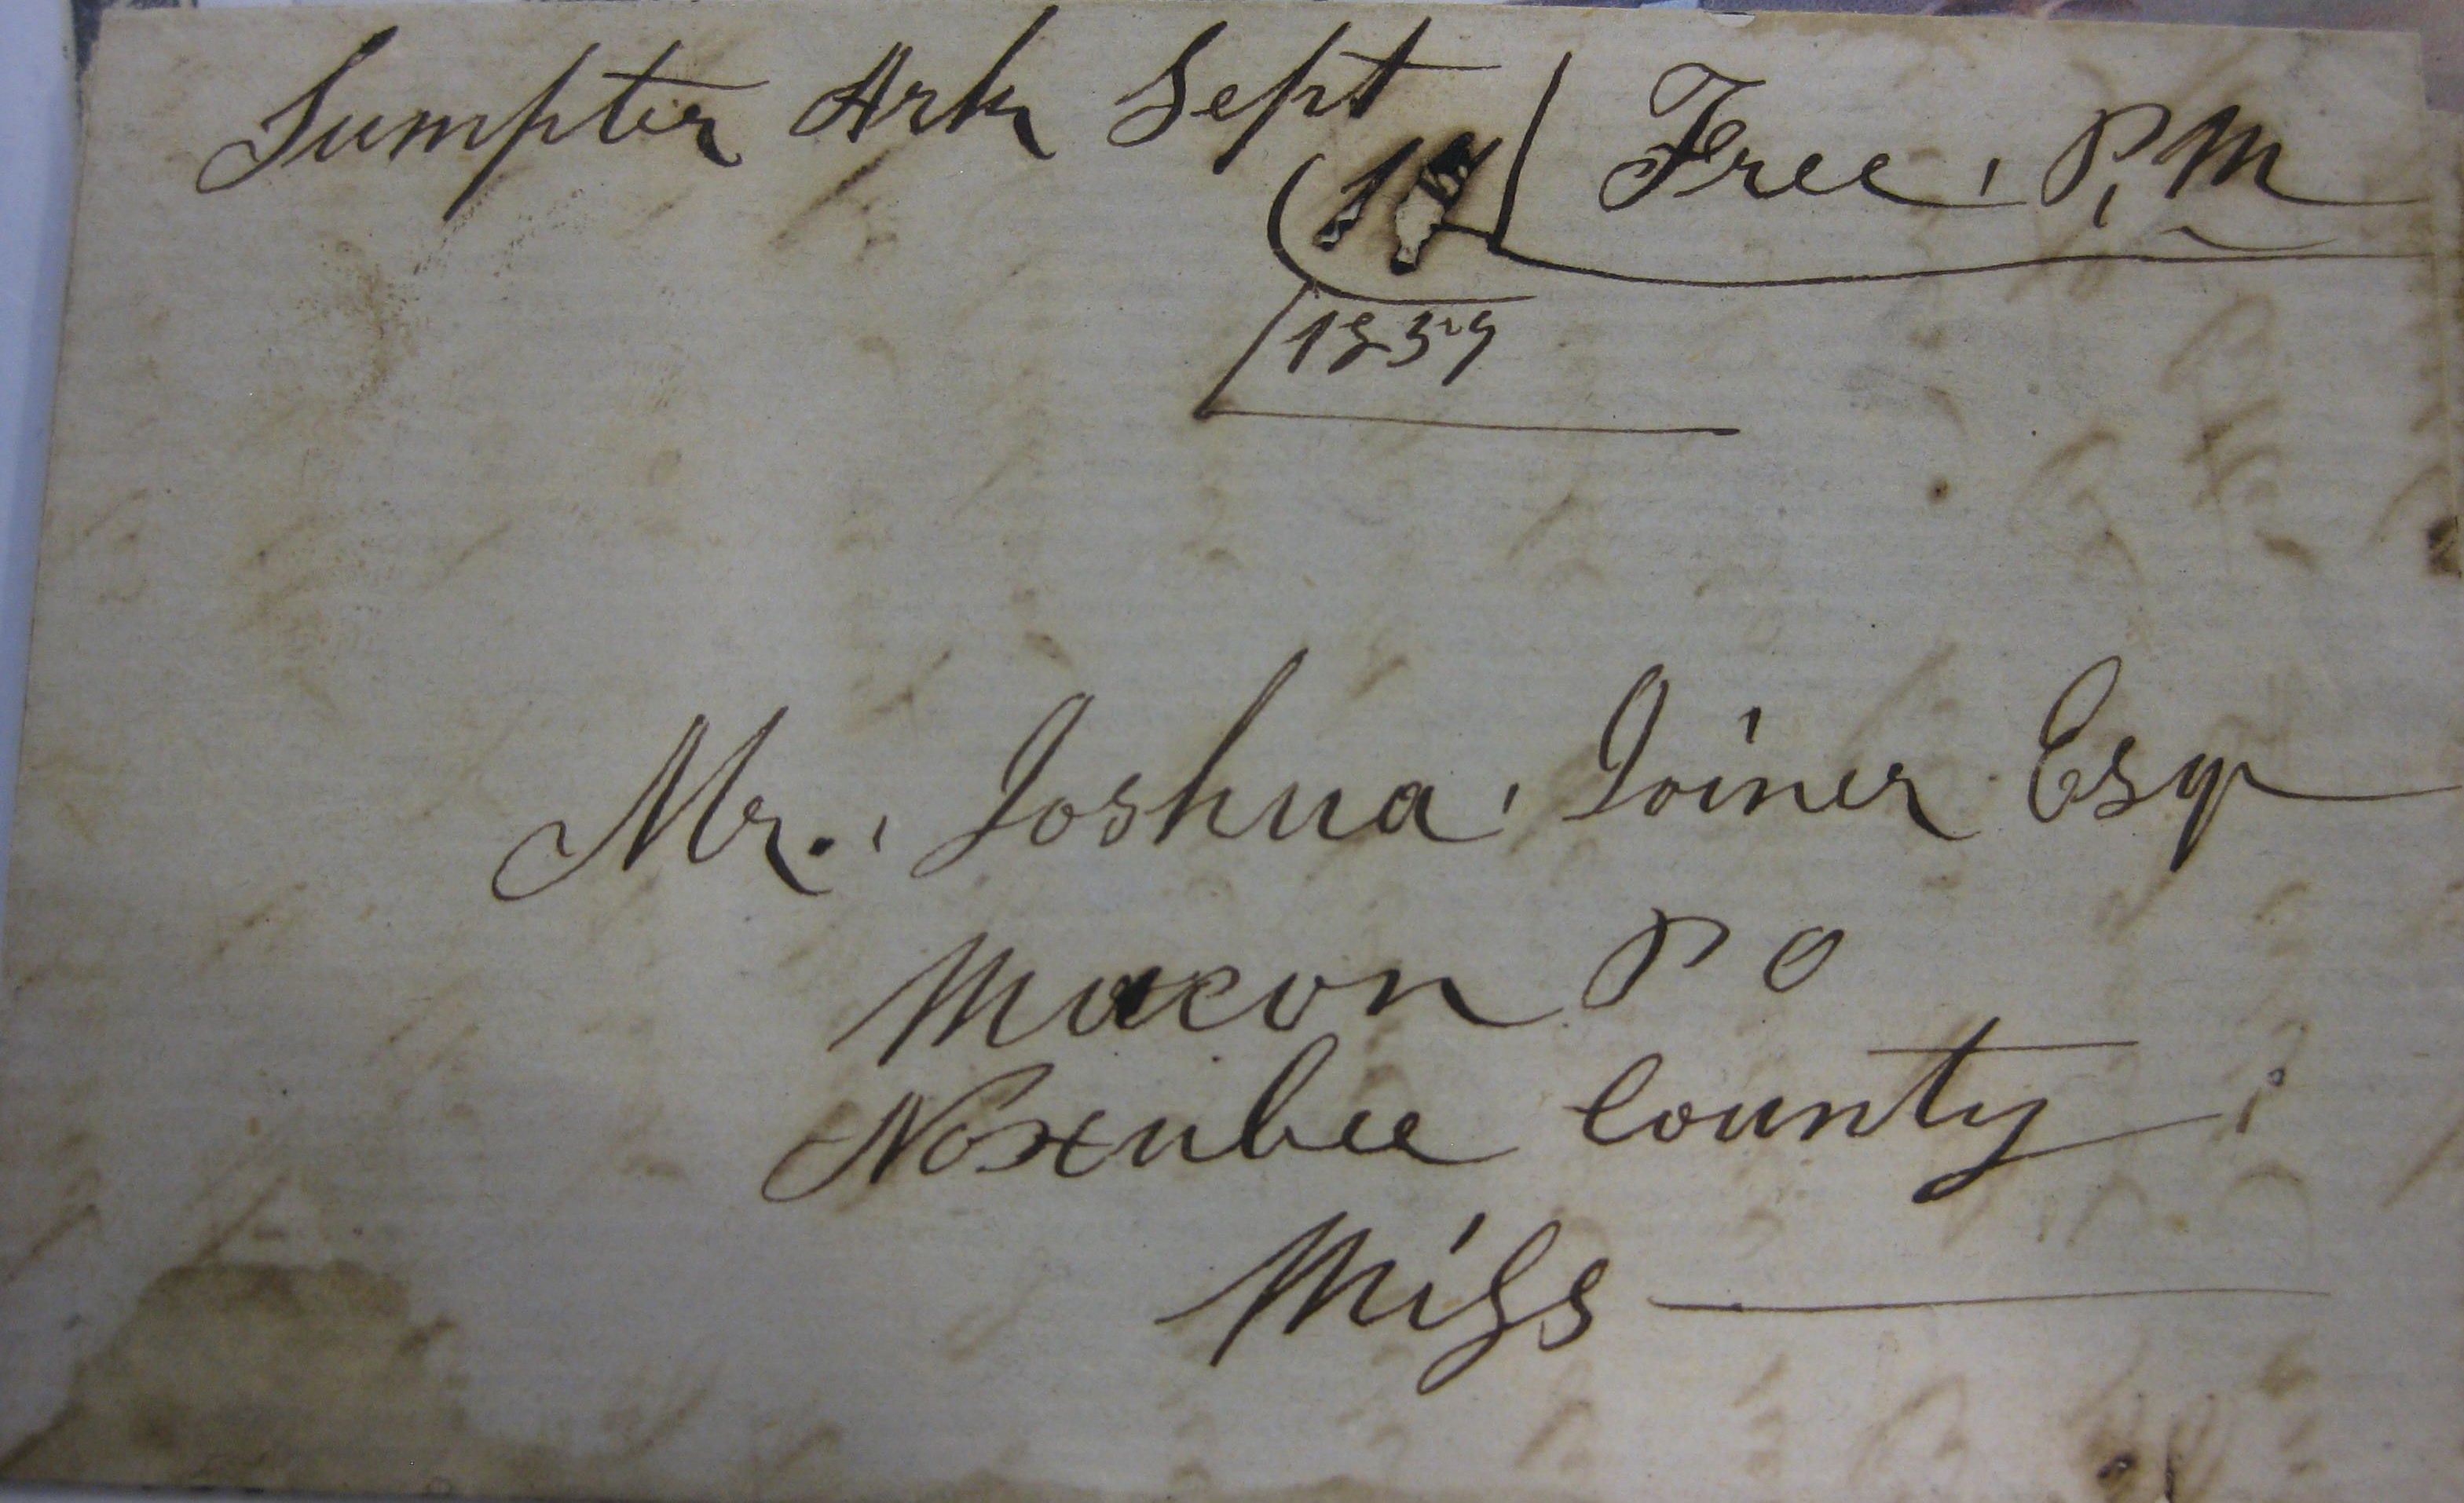 Sumpter Ark Sept
Free, P, M
1859
Mr., Joshua, Joiner Esqr
Macon P O
Noxubee County
Miss